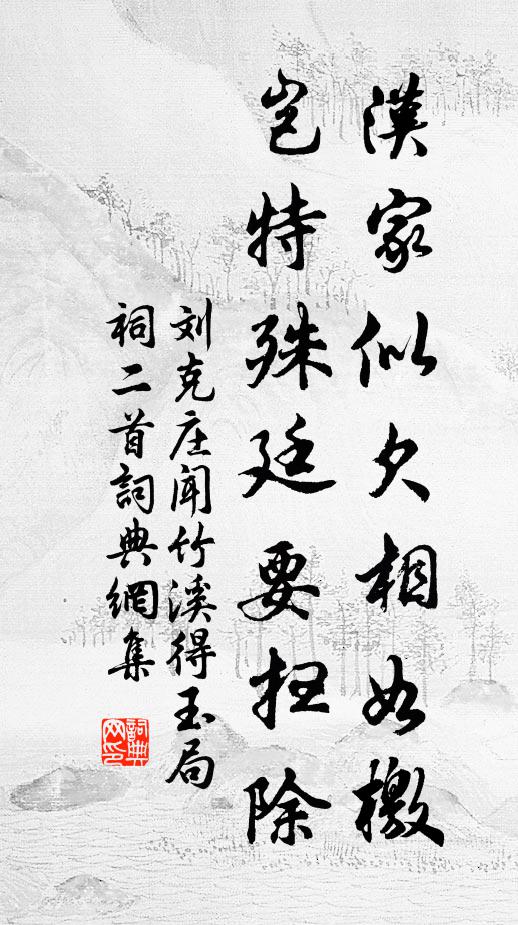 漢家似欠相如檄
岂特殊廷要扫除
刘克庄闻竹溪得玉局
祠二首詞典網集
詞典网印